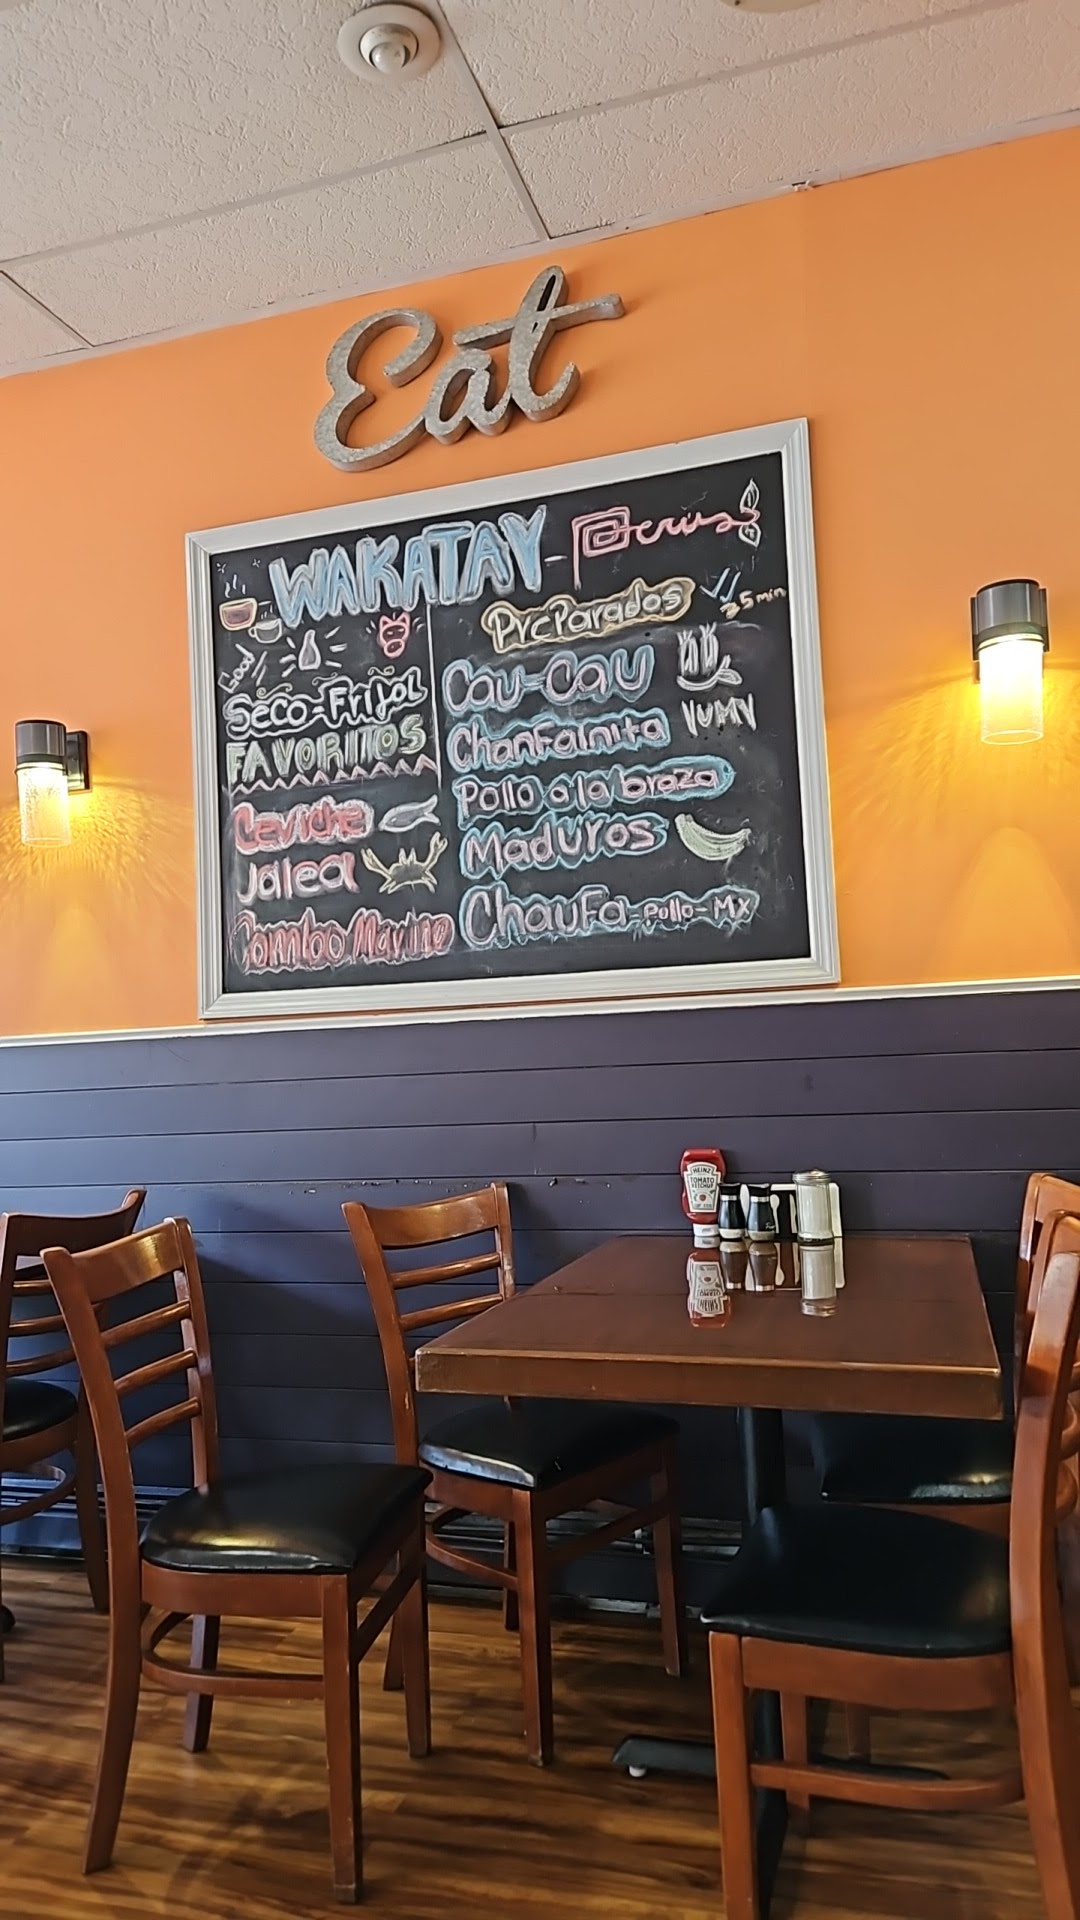 Eat
WAKATAY - Perú
Good
Seco-Frijol
FAVORITOS
Ceviche
Jalea
Combo Marino
PreParados
35 min
Cau-Cau
YUMY
Chanfainita
Pollo a la braza
Maduros
Chaufa - Pollo - MX
HEINZ
TOMATO
KETCHUP